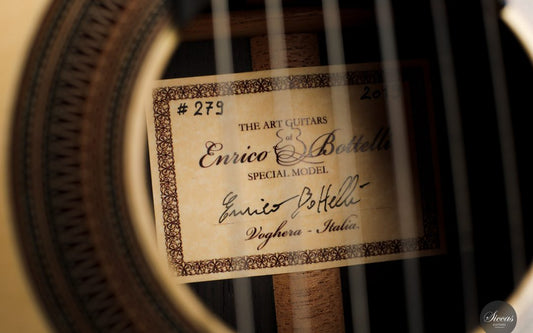 # 279
THE ART GUITARS
of
Enrico Bottelli
SPECIAL MODEL
Enrico Bottelli
Voghera - Italia
Siccas